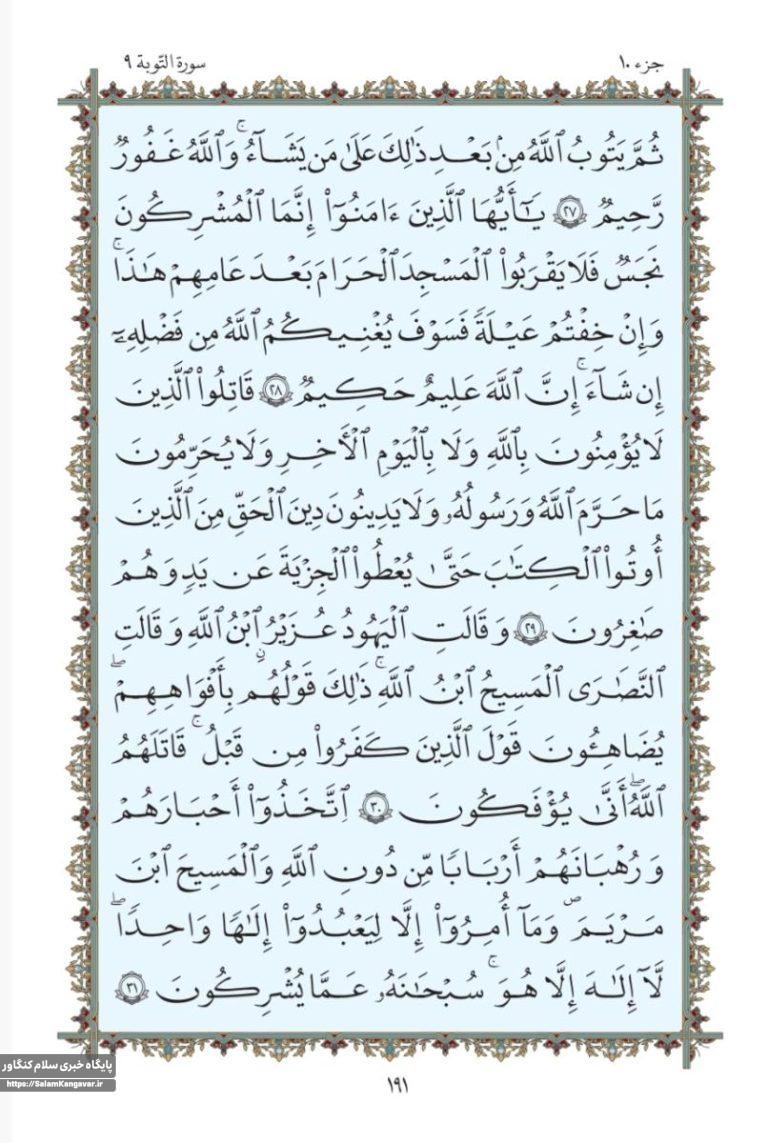 جزء ۱۰
سورة التّوبة ۹
ثُمَّ يَتُوبُ ٱللَّهُ مِنۢ بَعۡدِ ذَٰلِكَ عَلَىٰ مَن يَشَآءُۗ وَٱللَّهُ غَفُورٞ
رَّحِيمٞ ۲۷ يَـٰٓأَيُّهَا ٱلَّذِينَ ءَامَنُوٓاْ إِنَّمَا ٱلۡمُشۡرِكُونَ
نَجَسٞ فَلَا يَقۡرَبُواْ ٱلۡمَسۡجِدَ ٱلۡحَرَامَ بَعۡدَ عَامِهِمۡ هَٰذَاۚ
وَإِنۡ خِفۡتُمۡ عَيۡلَةٗ فَسَوۡفَ يُغۡنِيكُمُ ٱللَّهُ مِن فَضۡلِهِۦٓ
إِن شَآءَۚ إِنَّ ٱللَّهَ عَلِيمٌ حَكِيمٞ ۲۸ قَٰتِلُواْ ٱلَّذِينَ
لَا يُؤۡمِنُونَ بِٱللَّهِ وَلَا بِٱلۡيَوۡمِ ٱلۡأٓخِرِ وَلَا يُحَرِّمُونَ
مَا حَرَّمَ ٱللَّهُ وَرَسُولُهُۥ وَلَا يَدِينُونَ دِينَ ٱلۡحَقِّ مِنَ ٱلَّذِينَ
أُوتُواْ ٱلۡكِتَٰبَ حَتَّىٰ يُعۡطُواْ ٱلۡجِزۡيَةَ عَن يَدٖ وَهُمۡ
صَٰغِرُونَ ۲۹ وَقَالَتِ ٱلۡيَهُودُ عُزَيۡرٌ ٱبۡنُ ٱللَّهِ وَقَالَتِ
ٱلنَّصَٰرَى ٱلۡمَسِيحُ ٱبۡنُ ٱللَّهِۖ ذَٰلِكَ قَوۡلُهُم بِأَفۡوَٰهِهِمۡۖ
يُضَٰهِـُٔونَ قَوۡلَ ٱلَّذِينَ كَفَرُواْ مِن قَبۡلُۚ قَٰتَلَهُمُ
ٱللَّهُۖ أَنَّىٰ يُؤۡفَكُونَ ۳۰ ٱتَّخَذُوٓاْ أَحۡبَارَهُمۡ
وَرُهۡبَٰنَهُمۡ أَرۡبَابٗا مِّن دُونِ ٱللَّهِ وَٱلۡمَسِيحَ ٱبۡنَ
مَرۡيَمَ وَمَآ أُمِرُوٓاْ إِلَّا لِيَعۡبُدُوٓاْ إِلَٰهٗا وَٰحِدٗاۖ
لَّآ إِلَٰهَ إِلَّا هُوَۚ سُبۡحَٰنَهُۥ عَمَّا يُشۡرِكُونَ ۳۱
پایگاه خبری سلام کنگاور
https://SalamKangavar.ir
۱۹۱